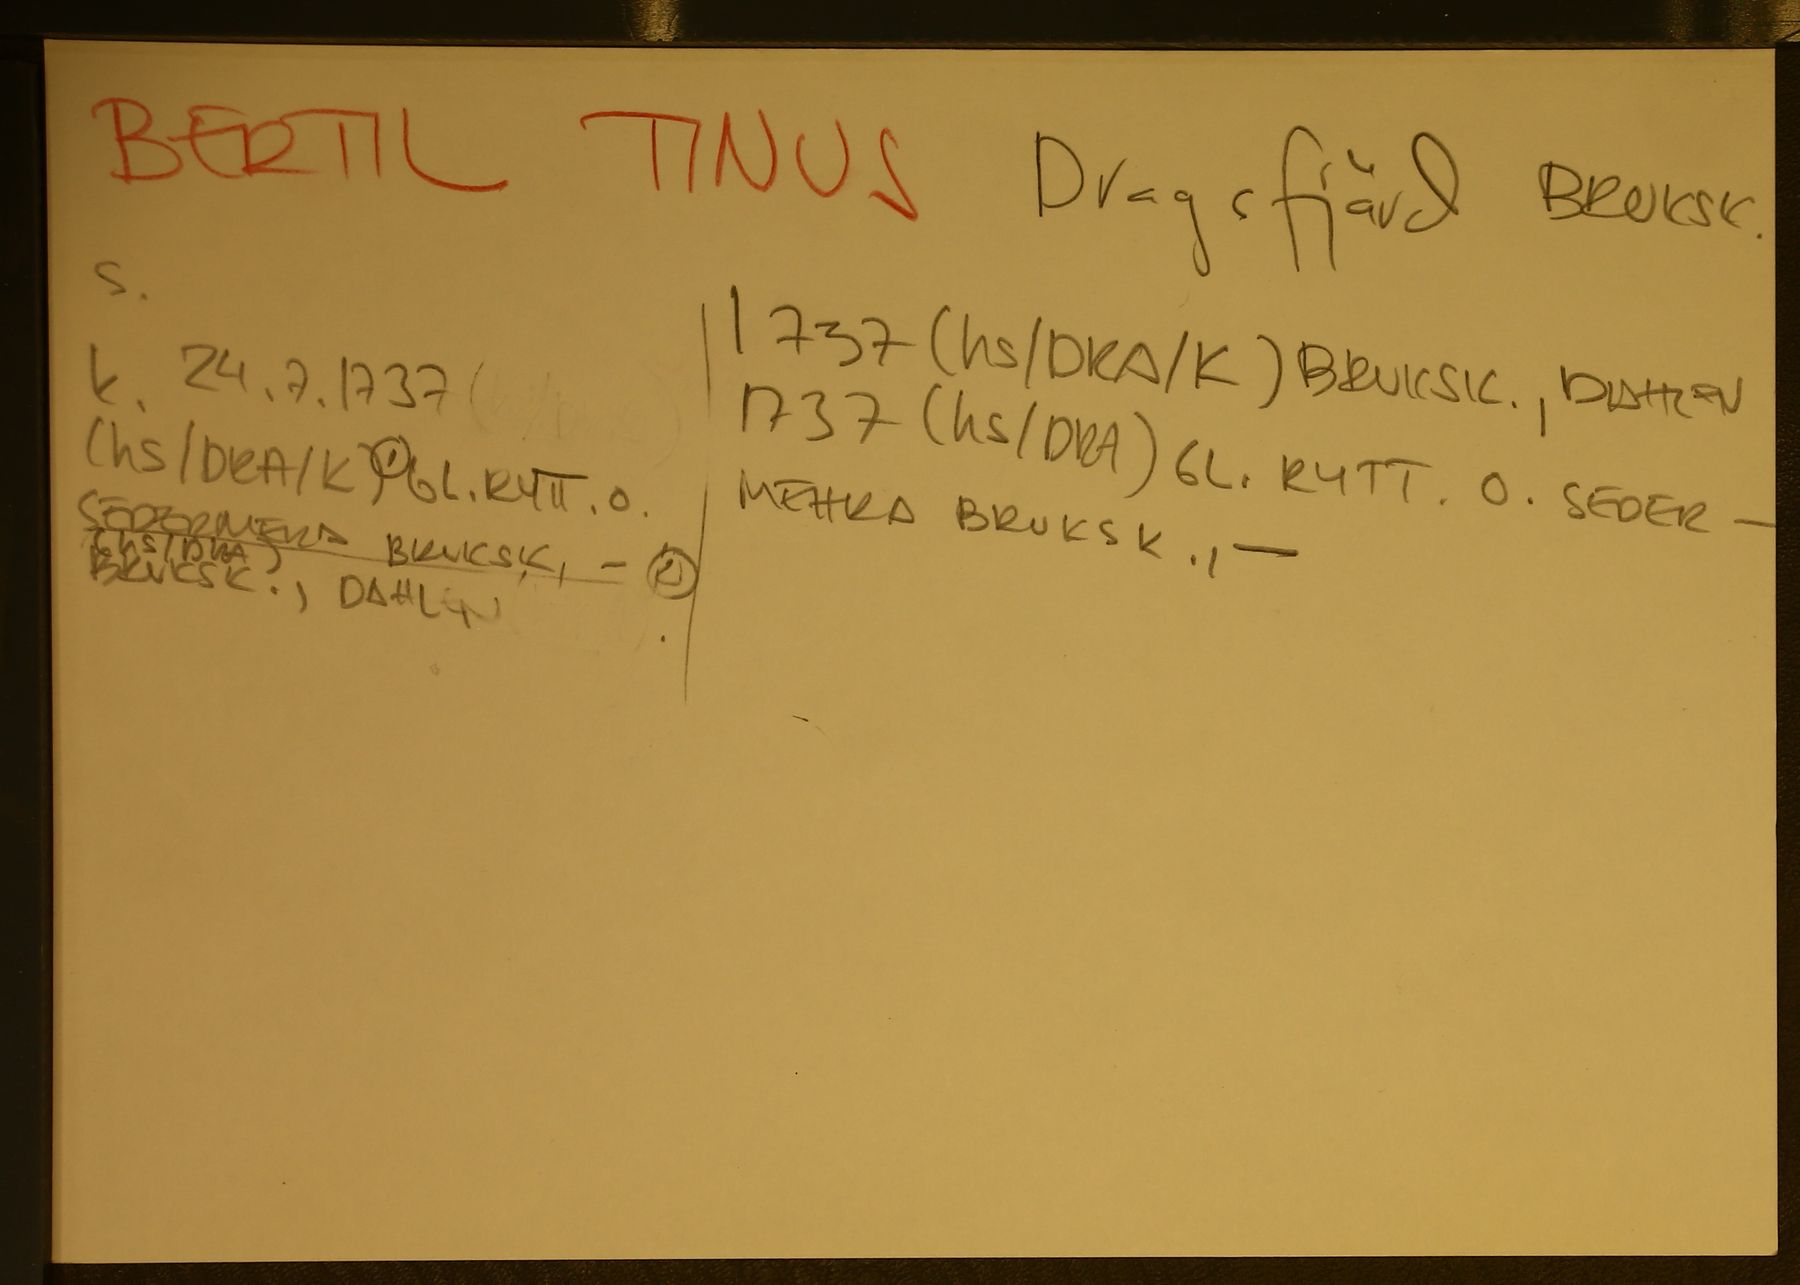 BERTIL TINUS Dragsfjärd BRUKSK.
s.
k. 24.7.1737
(hs/DRA/K) ① GL. RYTT. O.
SEDERMERA BRUKSK, — ②
(hs/DRA)
BRUKSK., DAHLEN
1737 (hs/DRA/K) BRUKSK., DAHLEN
1737 (hs/DRA) GL. RYTT. O. SEDER —
MEHRA BRUKSK., —